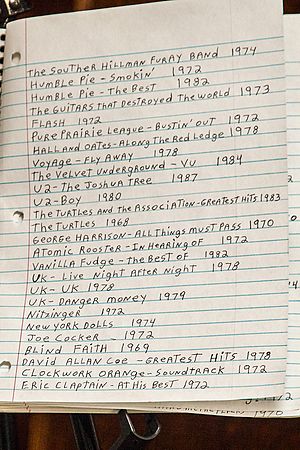 THE SOUTHER HILLMAN FURAY BAND 1974
HUMBLE PIE - SMOKIN' 1972
HUMBLE PIE - THE BEST 1982
THE GUITARS THAT DESTROYED THE WORLD 1973
FLASH 1972
PURE PRAIRIE LEAGUE - BUSTIN' OUT 1972
HALL AND OATES - ALONG THE RED LEDGE 1978
VOYAGE - FLY AWAY 1978
THE VELVET UNDERGROUND - VU 1984
U2 - THE JOSHUA TREE 1987
U2 - BOY 1980
THE TURTLES AND THE ASSOCIATION - GREATEST HITS 1983
THE TURTLES 1968
GEORGE HARRISON - ALL THINGS MUST PASS 1970
ATOMIC ROOSTER - IN HEARING OF 1972
VANILLA FUDGE - THE BEST OF 1982
UK - LIVE NIGHT AFTER NIGHT 1978
UK - UK 1978
UK - DANGER MONEY 1979
NITZINGER 1972
NEW YORK DOLLS 1974
JOE COCKER - 1972
BLIND FAITH 1969
DAVID ALLAN COE - GREATEST HITS 1978
CLOCKWORK ORANGE - SOUNDTRACK 1972
ERIC CLAPTAIN - AT HIS BEST 1972